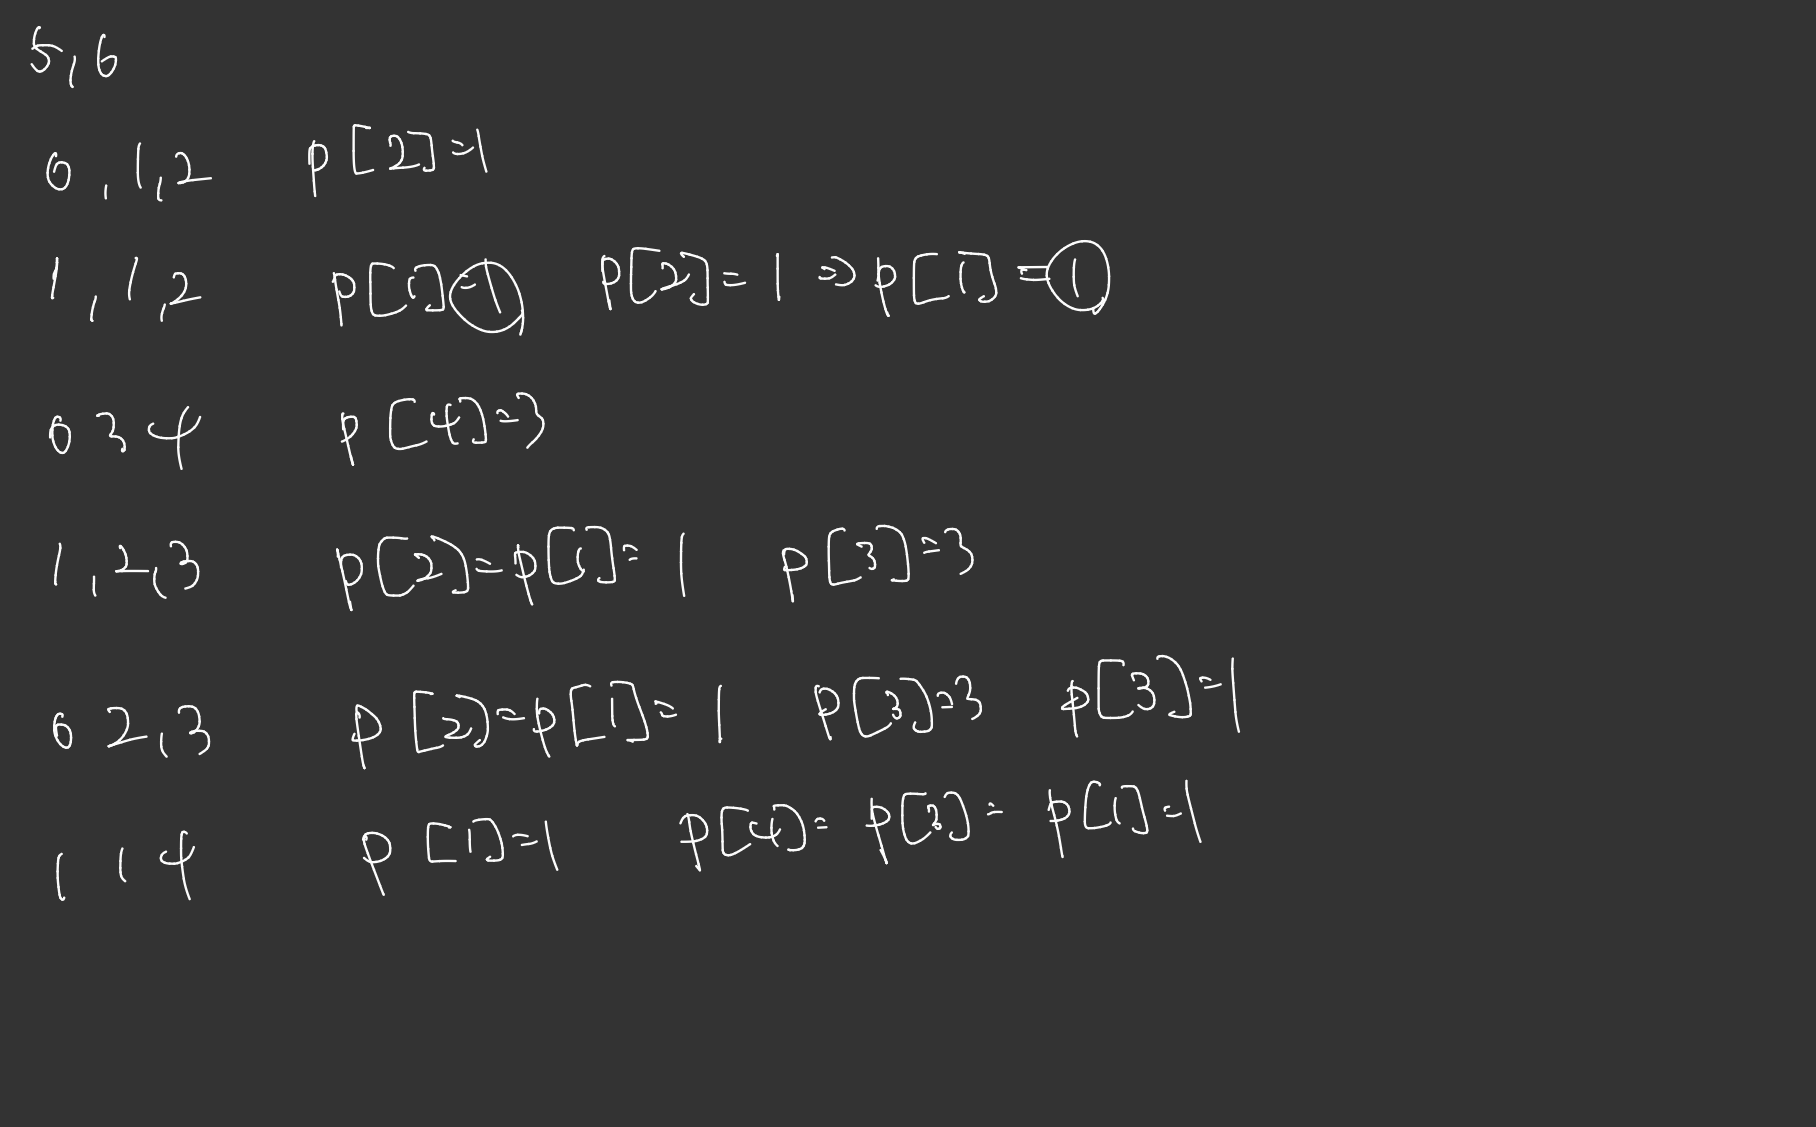 5,6
0,1,2 p[2]=1
1,1,2 p[1]=1 p[2]=1 ⇒ p[1]=1
0 3 4 p[4]=3
1,2,3 p[2]=p[1]=1 p[3]=3
0 2,3 p[2]=p[1]=1 p[3]=3 p[3]=1
1 1 4 p[1]=1 p[4]=p[3]=p[1]=1